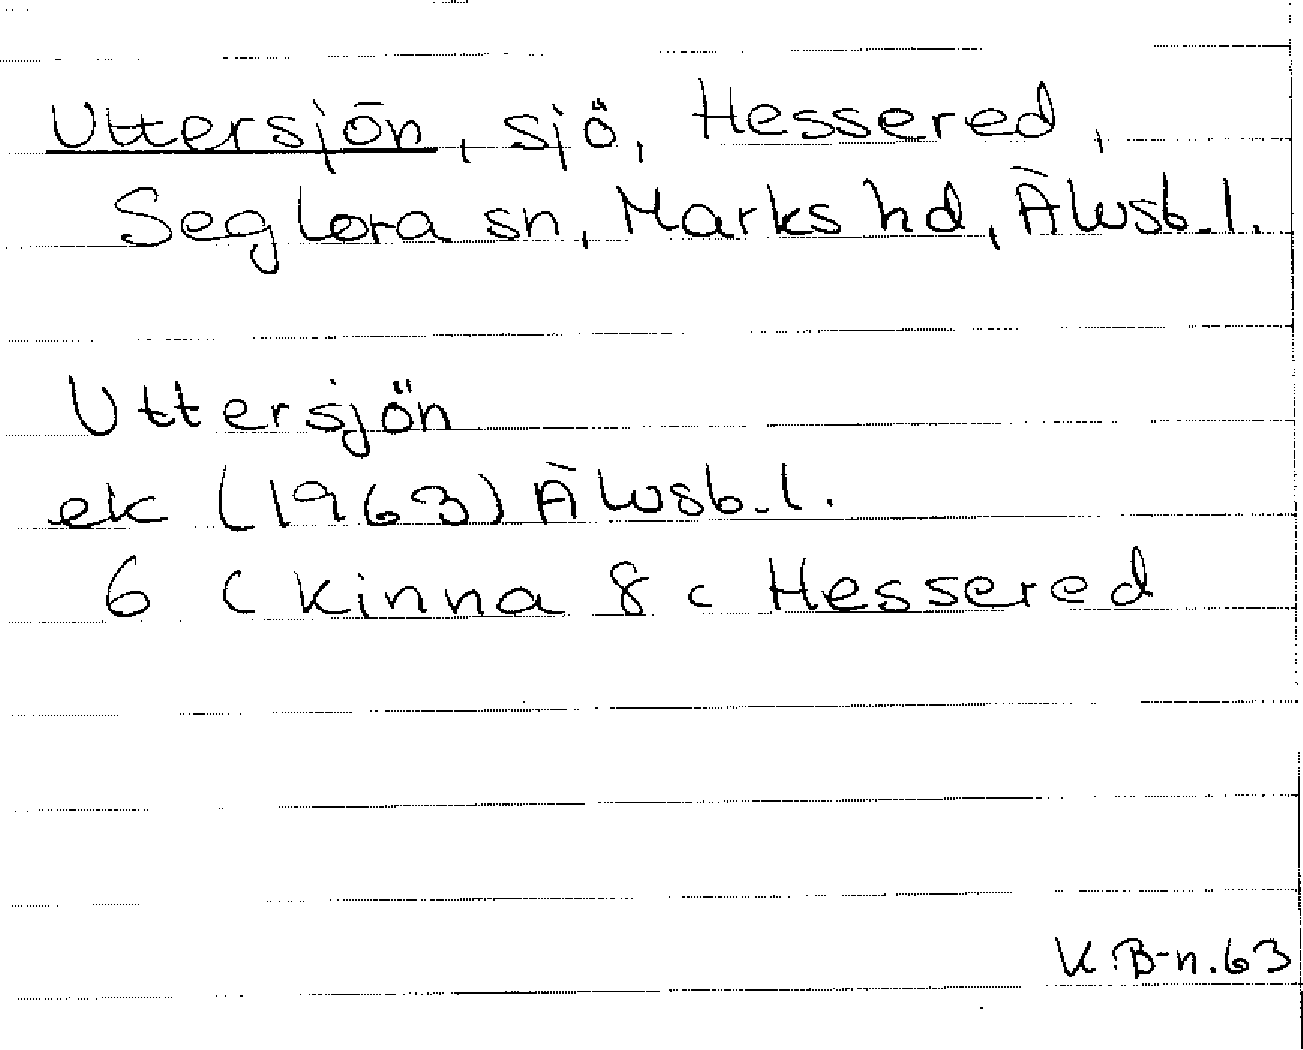 Uttersjön, sjö, Hessered,
Seglora sn, Marks hd, Älvsb. l.
Uttersjön
ek (1963) Älvsb. l.
6 C Kinna 8 c Hessered
K.B-n.63